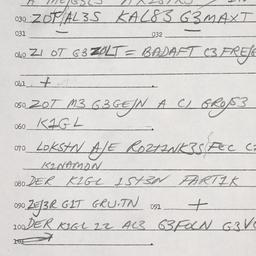 030 ZOT/AL3S KAL83 G3MAXT
031 032
040 ZI OT G3 ZOLT = BADAFT C3FRE/G
041 +
050 ZOT M3 G3GE/N A CI GROS3
060 K1GL
070 LOKSTN A/E ROZ1INK3S FEC
K1NAMON
080 DER K1GL IST3N FART1K
090 ZE/3R G1T GRU.TN 091 +
100 DER K1GL IZ AL3 G3FOLN G3V
101